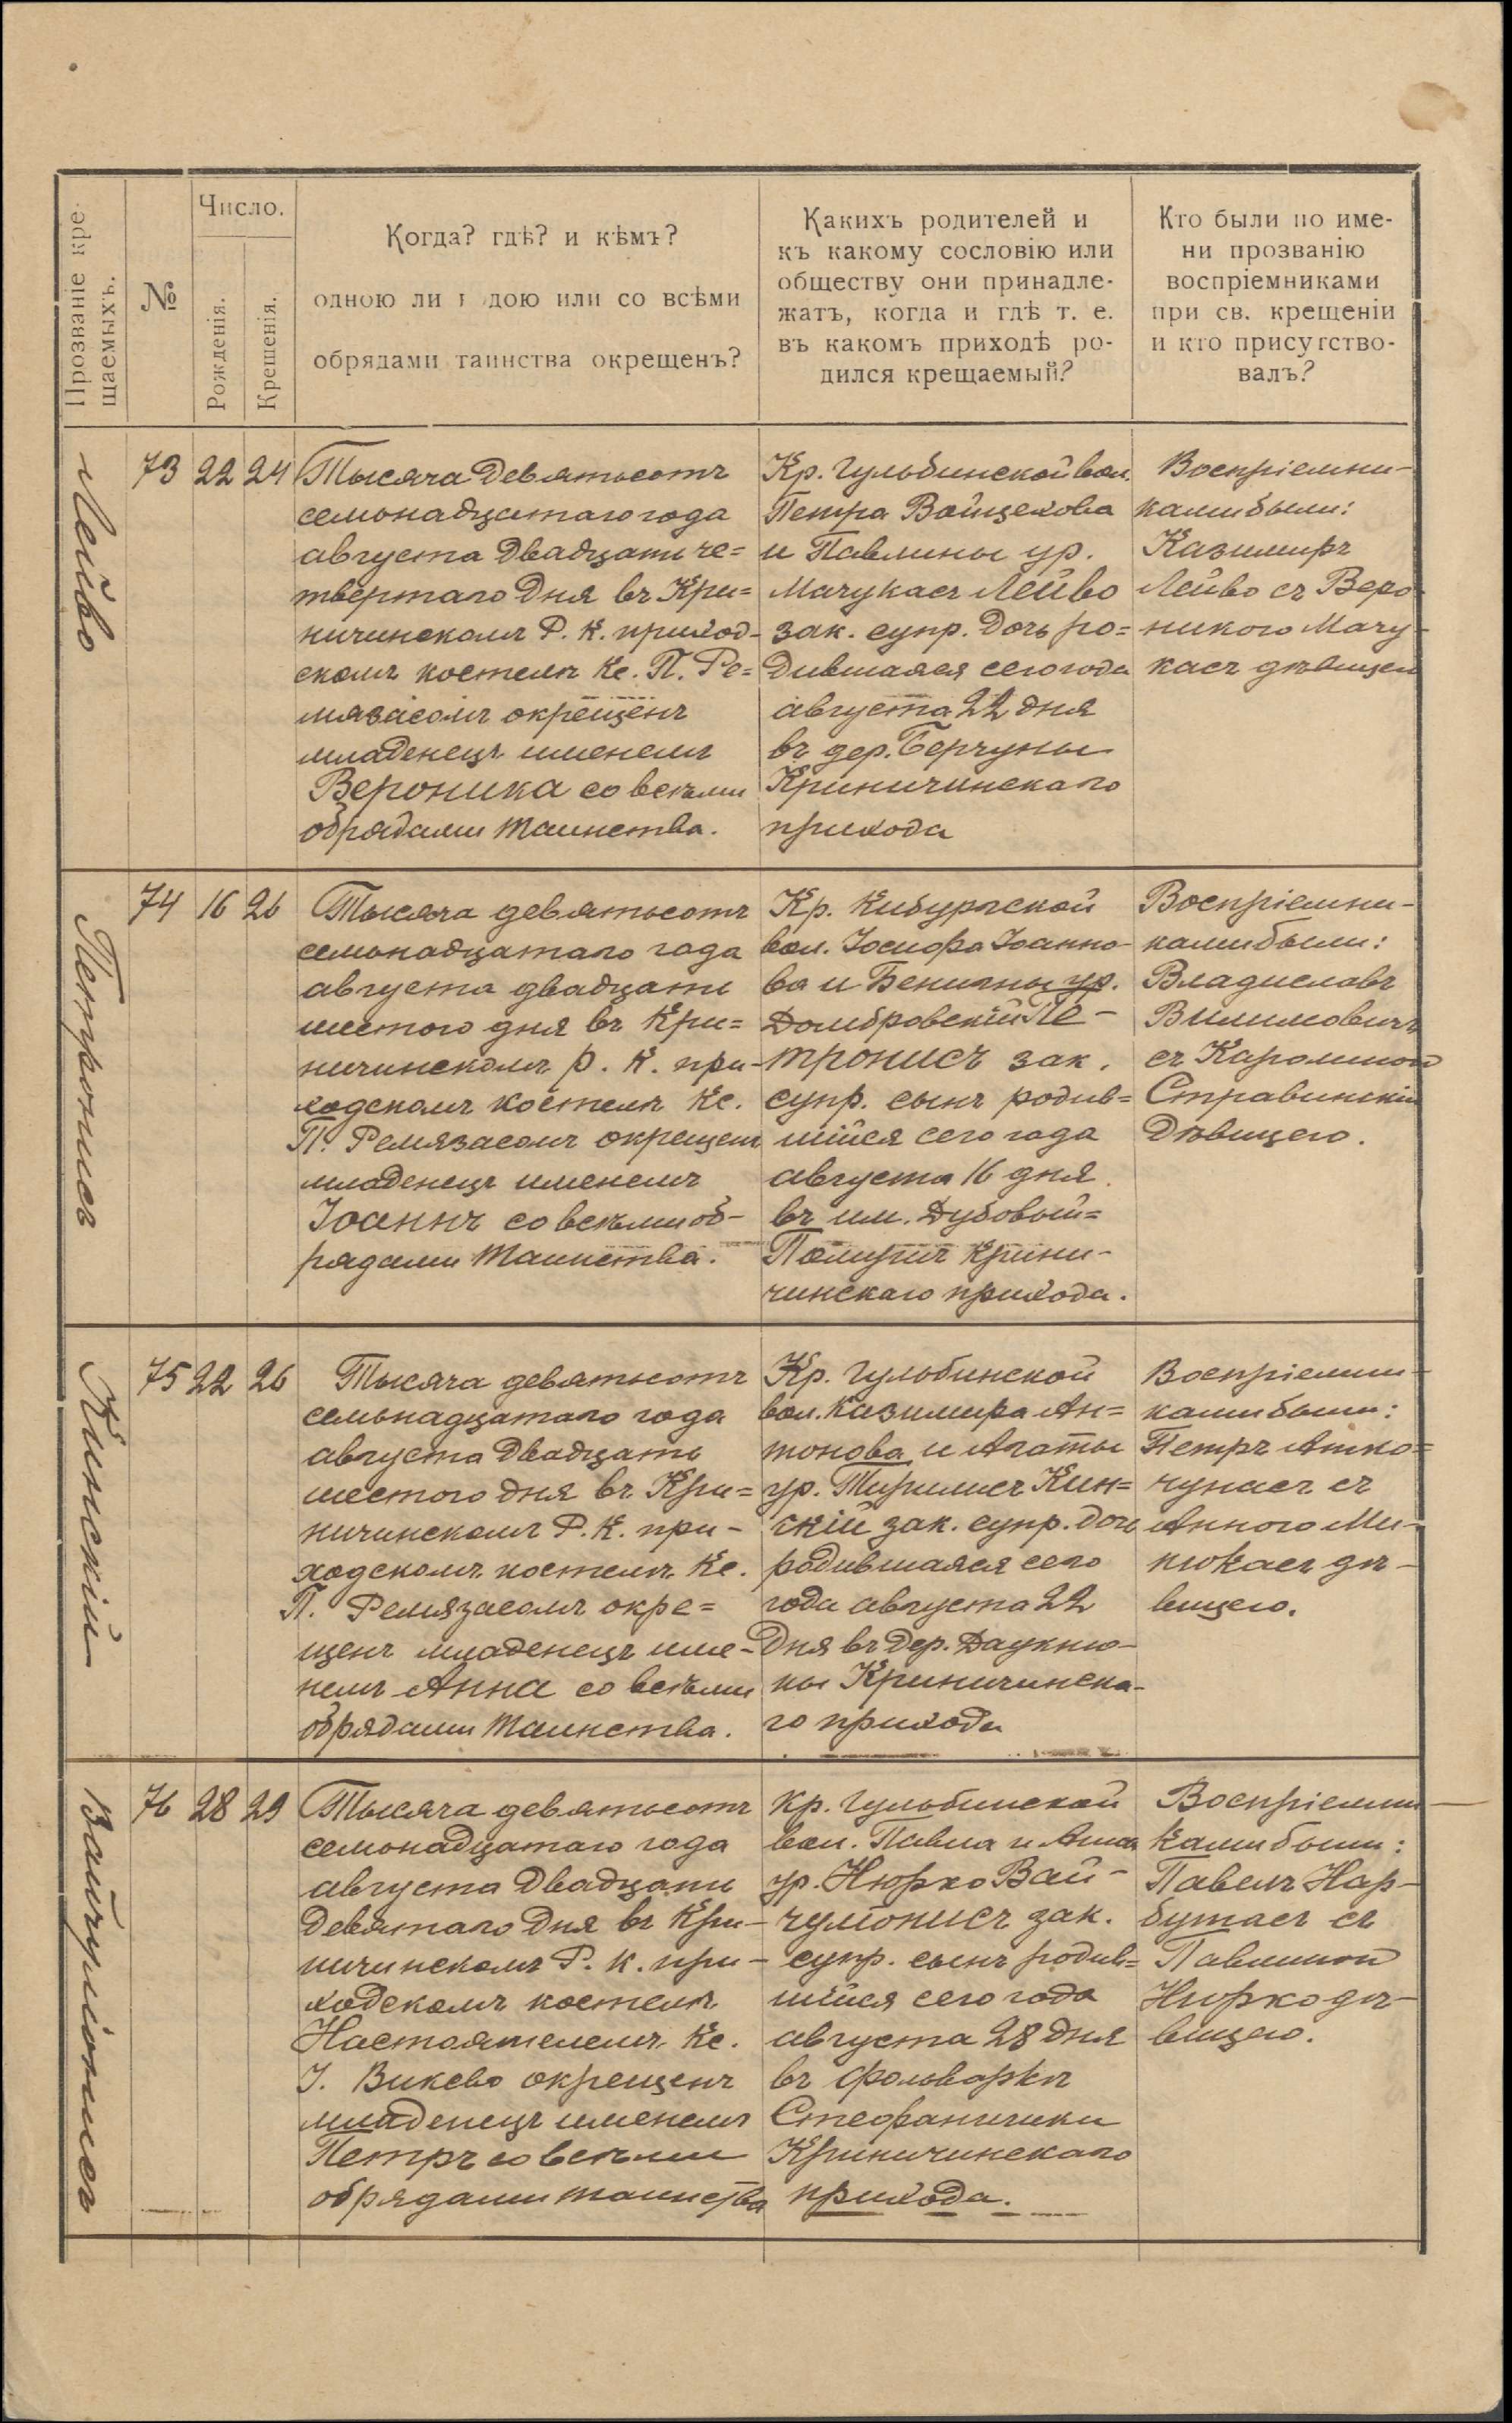 Прозваніе кре-
щаемыхъ.
№
Число.
Рожденія.
Крещенія.
Когда? гдѣ? и кѣмъ?
одною ли водою или со всѣми
обрядами таинства окрещенъ?
Какихъ родителей и
къ какому сословію или
обществу они принадле-
жатъ, когда и гдѣ т. е.
въ какомъ приходѣ ро-
дился крещаемый?
Кто были по име-
ни прозванію
воспріемниками
при св. крещеніи
и кто присутство-
валъ?
Лейво
73 22 24
Тысяча девятьсотъ
семьнадцатаго года
августа двадцать че=
твертаго дня въ Кри=
ничинскомъ Р. К. приход-
скомъ костелѣ Кс. П. Ре=
мязасомъ окрещенъ
младенецъ именемъ
Вероника со всѣми
обрядами таинства.
Кр. Гульбинской вол.
Петра Войцехова
и Павлины ур.
Мачукасъ Лейво
зак. супр. дочь ро=
дившаяся сего года
августа 22 дня
въ дер. Берчуны
Криничинскаго
прихода
Воспріемни-
ками были:
Казимиръ
Лейво съ Веро-
никою Мачу-
касъ дѣвицею
Петронисъ
74 16 26
Тысяча девятьсотъ
семьнадцатаго года
августа двадцать
шестого дня въ Кри=
ничинскомъ Р. К. при-
ходскомъ костелѣ Кс.
П. Ремязасомъ окрещенъ
младенецъ именемъ
Іоаннъ со всѣми об-
рядами таинства.
Кр. Кибурской
вол. Іосифа Іоанно-
ва и Бенигны ур.
Домбровскій Пе-
тронисъ зак.
супр. сынъ родив=
шійся сего года
августа 16 дня
въ им. Дубовый=
Крини-
чинскаго прихода.
Воспріемни-
ками были:
Владиславъ
Вилимовичъ
съ Каролиной
Стравинскій
дѣвицею.
Кинскій
75 22 26
Тысяча девятьсотъ
семьнадцатаго года
августа двадцать
шестого дня въ Кри=
ничинскомъ Р. К. при-
ходскомъ костелѣ Кс.
П. Ремязасомъ окре=
щенъ младенецъ име-
немъ Анна со всѣми
обрядами таинства.
Кр. Гульбинской
вол. Казимира Ан=
тонова и Агаты
ур. Тирилисъ Кин=
скій зак. супр. дочь
родившаяся сего
года августа 22
дня въ дер. Даукню-
ны Криничинска-
го прихода
Воспріемни-
ками были:
Петръ Атко=
чунасъ съ
Анною Ми-
нюкасъ дѣ-
вицею.
Вайчулёнисъ
76 28 29
Тысяча девятьсотъ
семьнадцатаго года
августа двадцать
девятаго дня въ Кри-
ничинскомъ Р. К. при-
ходскомъ костелѣ
Настоятелемъ Кс.
І. Викево окрещенъ
младенецъ именемъ
Петръ со всѣми
обрядами таинства
Кр. Гульбинской
вол. Павла и Анны
ур. Нюрко Вай-
чулёнисъ зак.
супр. сынъ родив=
шійся сего года
августа 28 дня
въ фольваркѣ
Стефанишки
Криничинскаго
прихода.
Воспріемни-
ками были:
Павелъ Нар-
бутасъ съ
Павлиной
Нюрко дѣ-
вицею.